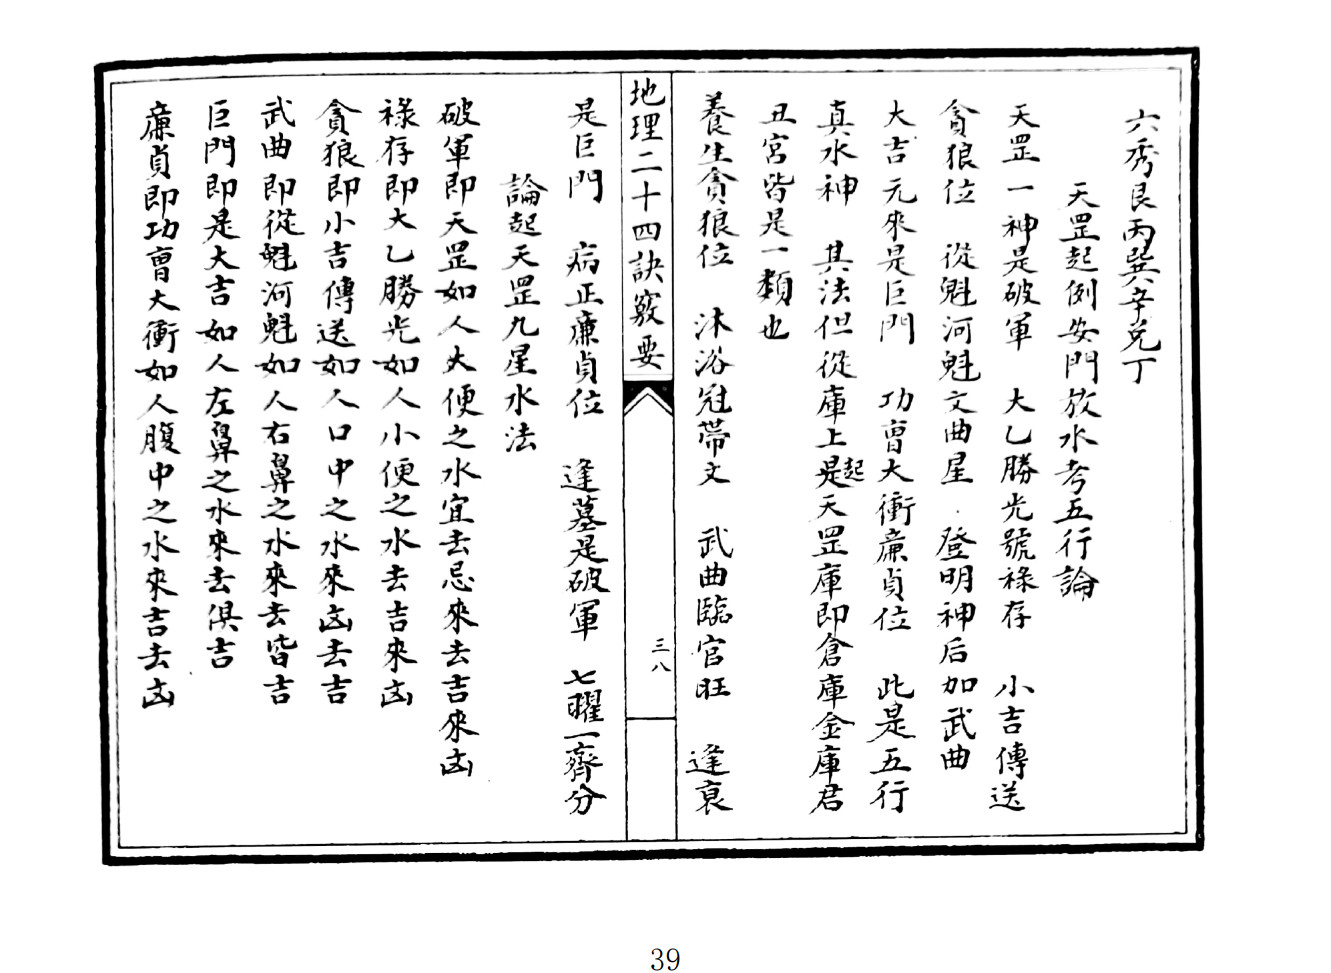 六秀艮丙巽辛兌丁
天罡起例安門放水考五行論
天罡一神是破軍　大乙勝光號祿存　小吉傳送
貪狼位　從魁河魁文曲星　登明神后加武曲
大吉元來是巨門　功曹大衝廉貞位　此是五行
真水神　其法但從庫上是起天罡庫即倉庫金庫君
丑宮皆是一類也
養生貪狼位　沐浴冠帶文　武曲臨官旺　逢衰
地理二十四訣竅要
三八
是巨門　病正廉貞位　逢墓是破軍　七曜一齊分
論起天罡九星水法
破軍即天罡如人大便之水宜去忌來去吉來凶
祿存即大乙勝光如人小便之水去吉來凶
貪狼即小吉傳送如人口中之水來凶去吉
武曲即從魁河魁如人右鼻之水來去皆吉
巨門即是大吉如人左鼻之水來去俱吉
廉貞即功曹大衝如人腹中之水來吉去凶
39